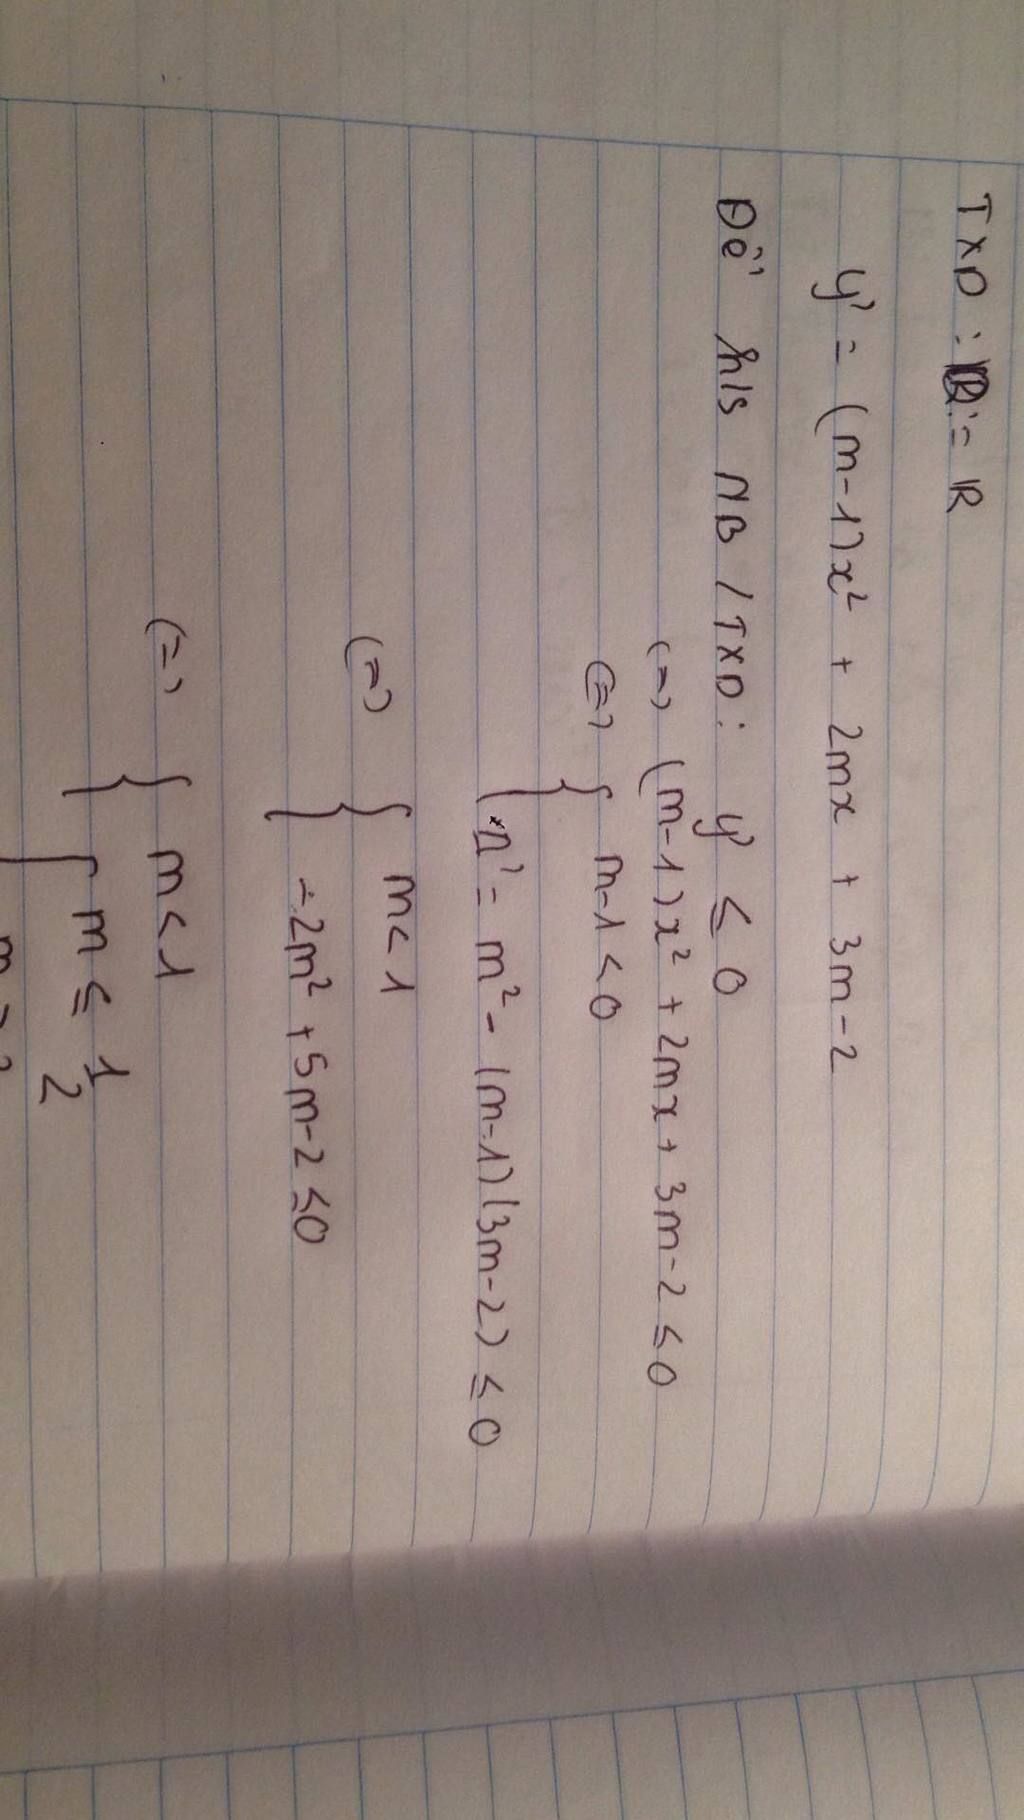 TXD : D = R
y' = (m-1)x² + 2mx + 3m-2
Để h/s NB / TXD : y' ≤ 0
(=) (m-1)x² + 2mx + 3m-2 ≤ 0
(=) { m-1 < 0
Δ' = m² - (m-1)(3m-2) ≤ 0
(=) { m < 1
-2m² + 5m - 2 ≤ 0
(=) { m < 1
[ m ≤ 1/2